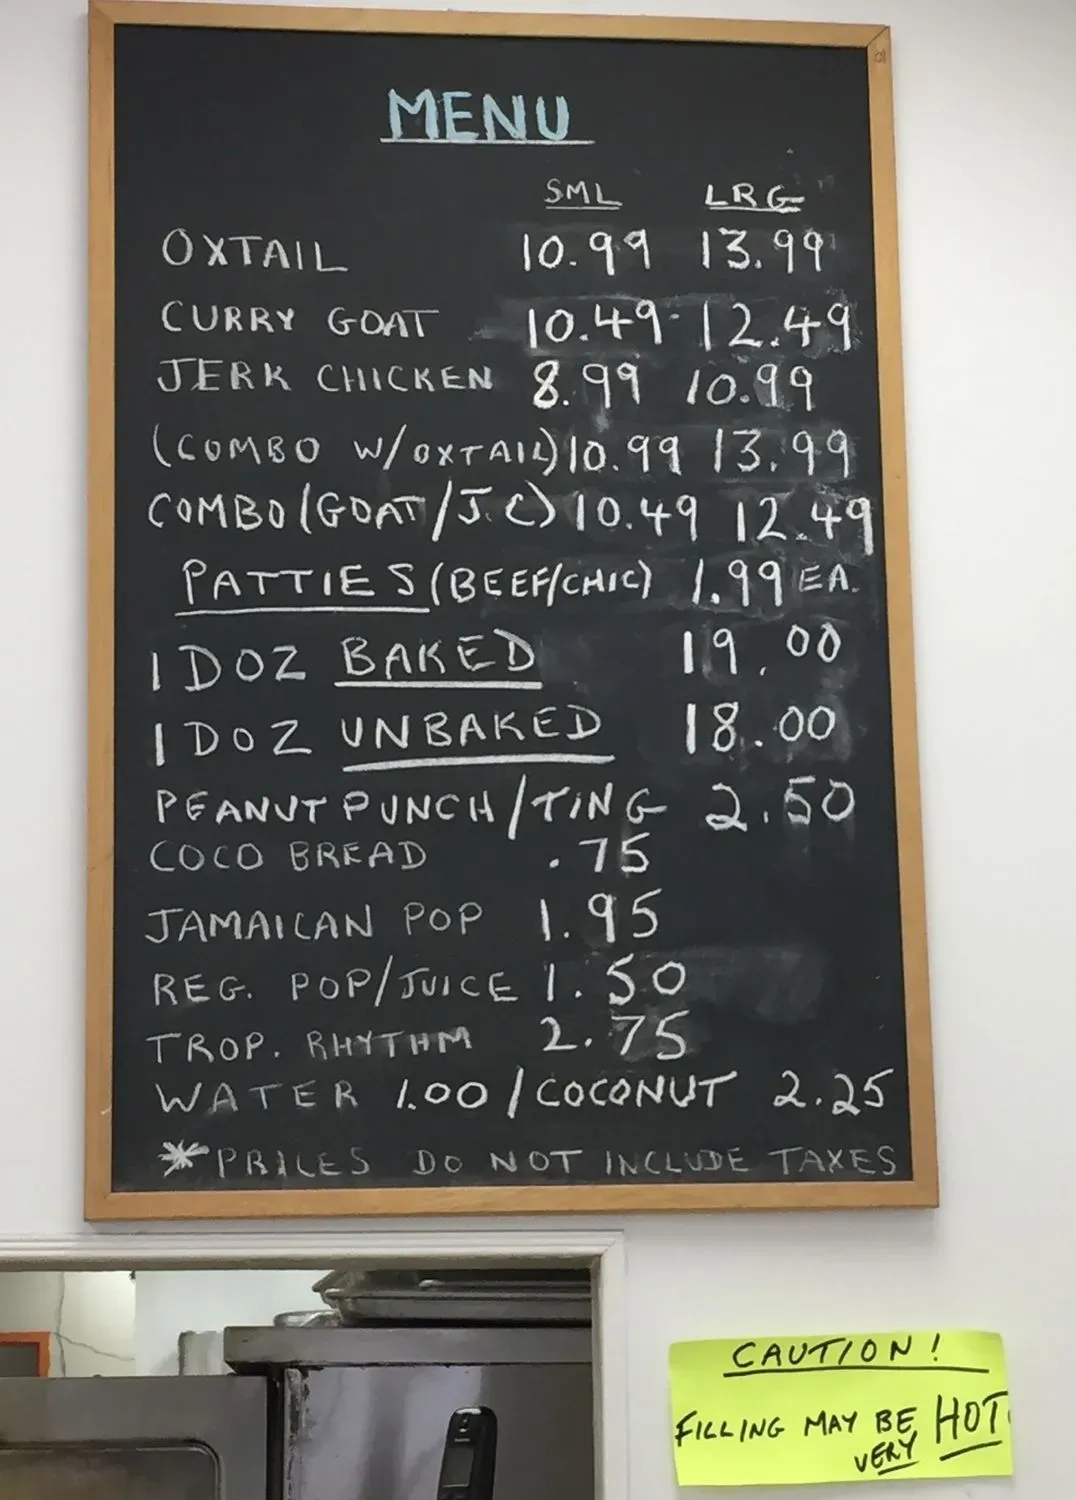 MENU
SML LRG
OXTAIL 10.99 13.99
CURRY GOAT 10.49 12.49
JERK CHICKEN 8.99 10.99
(COMBO W/OXTAIL) 10.99 13.99
COMBO (GOAT/J.C) 10.49 12.49
PATTIES (BEEF/CHIC) 1.99 EA.
1 DOZ BAKED 19.00
1 DOZ UNBAKED 18.00
PEANUT PUNCH/TING 2.50
COCO BREAD .75
JAMAICAN POP 1.95
REG. POP/JUICE 1.50
TROP. RHYTHM 2.75
WATER 1.00/COCONUT 2.25
*PRICES DO NOT INCLUDE TAXES
CAUTION!
FILLING MAY BE VERY HOT